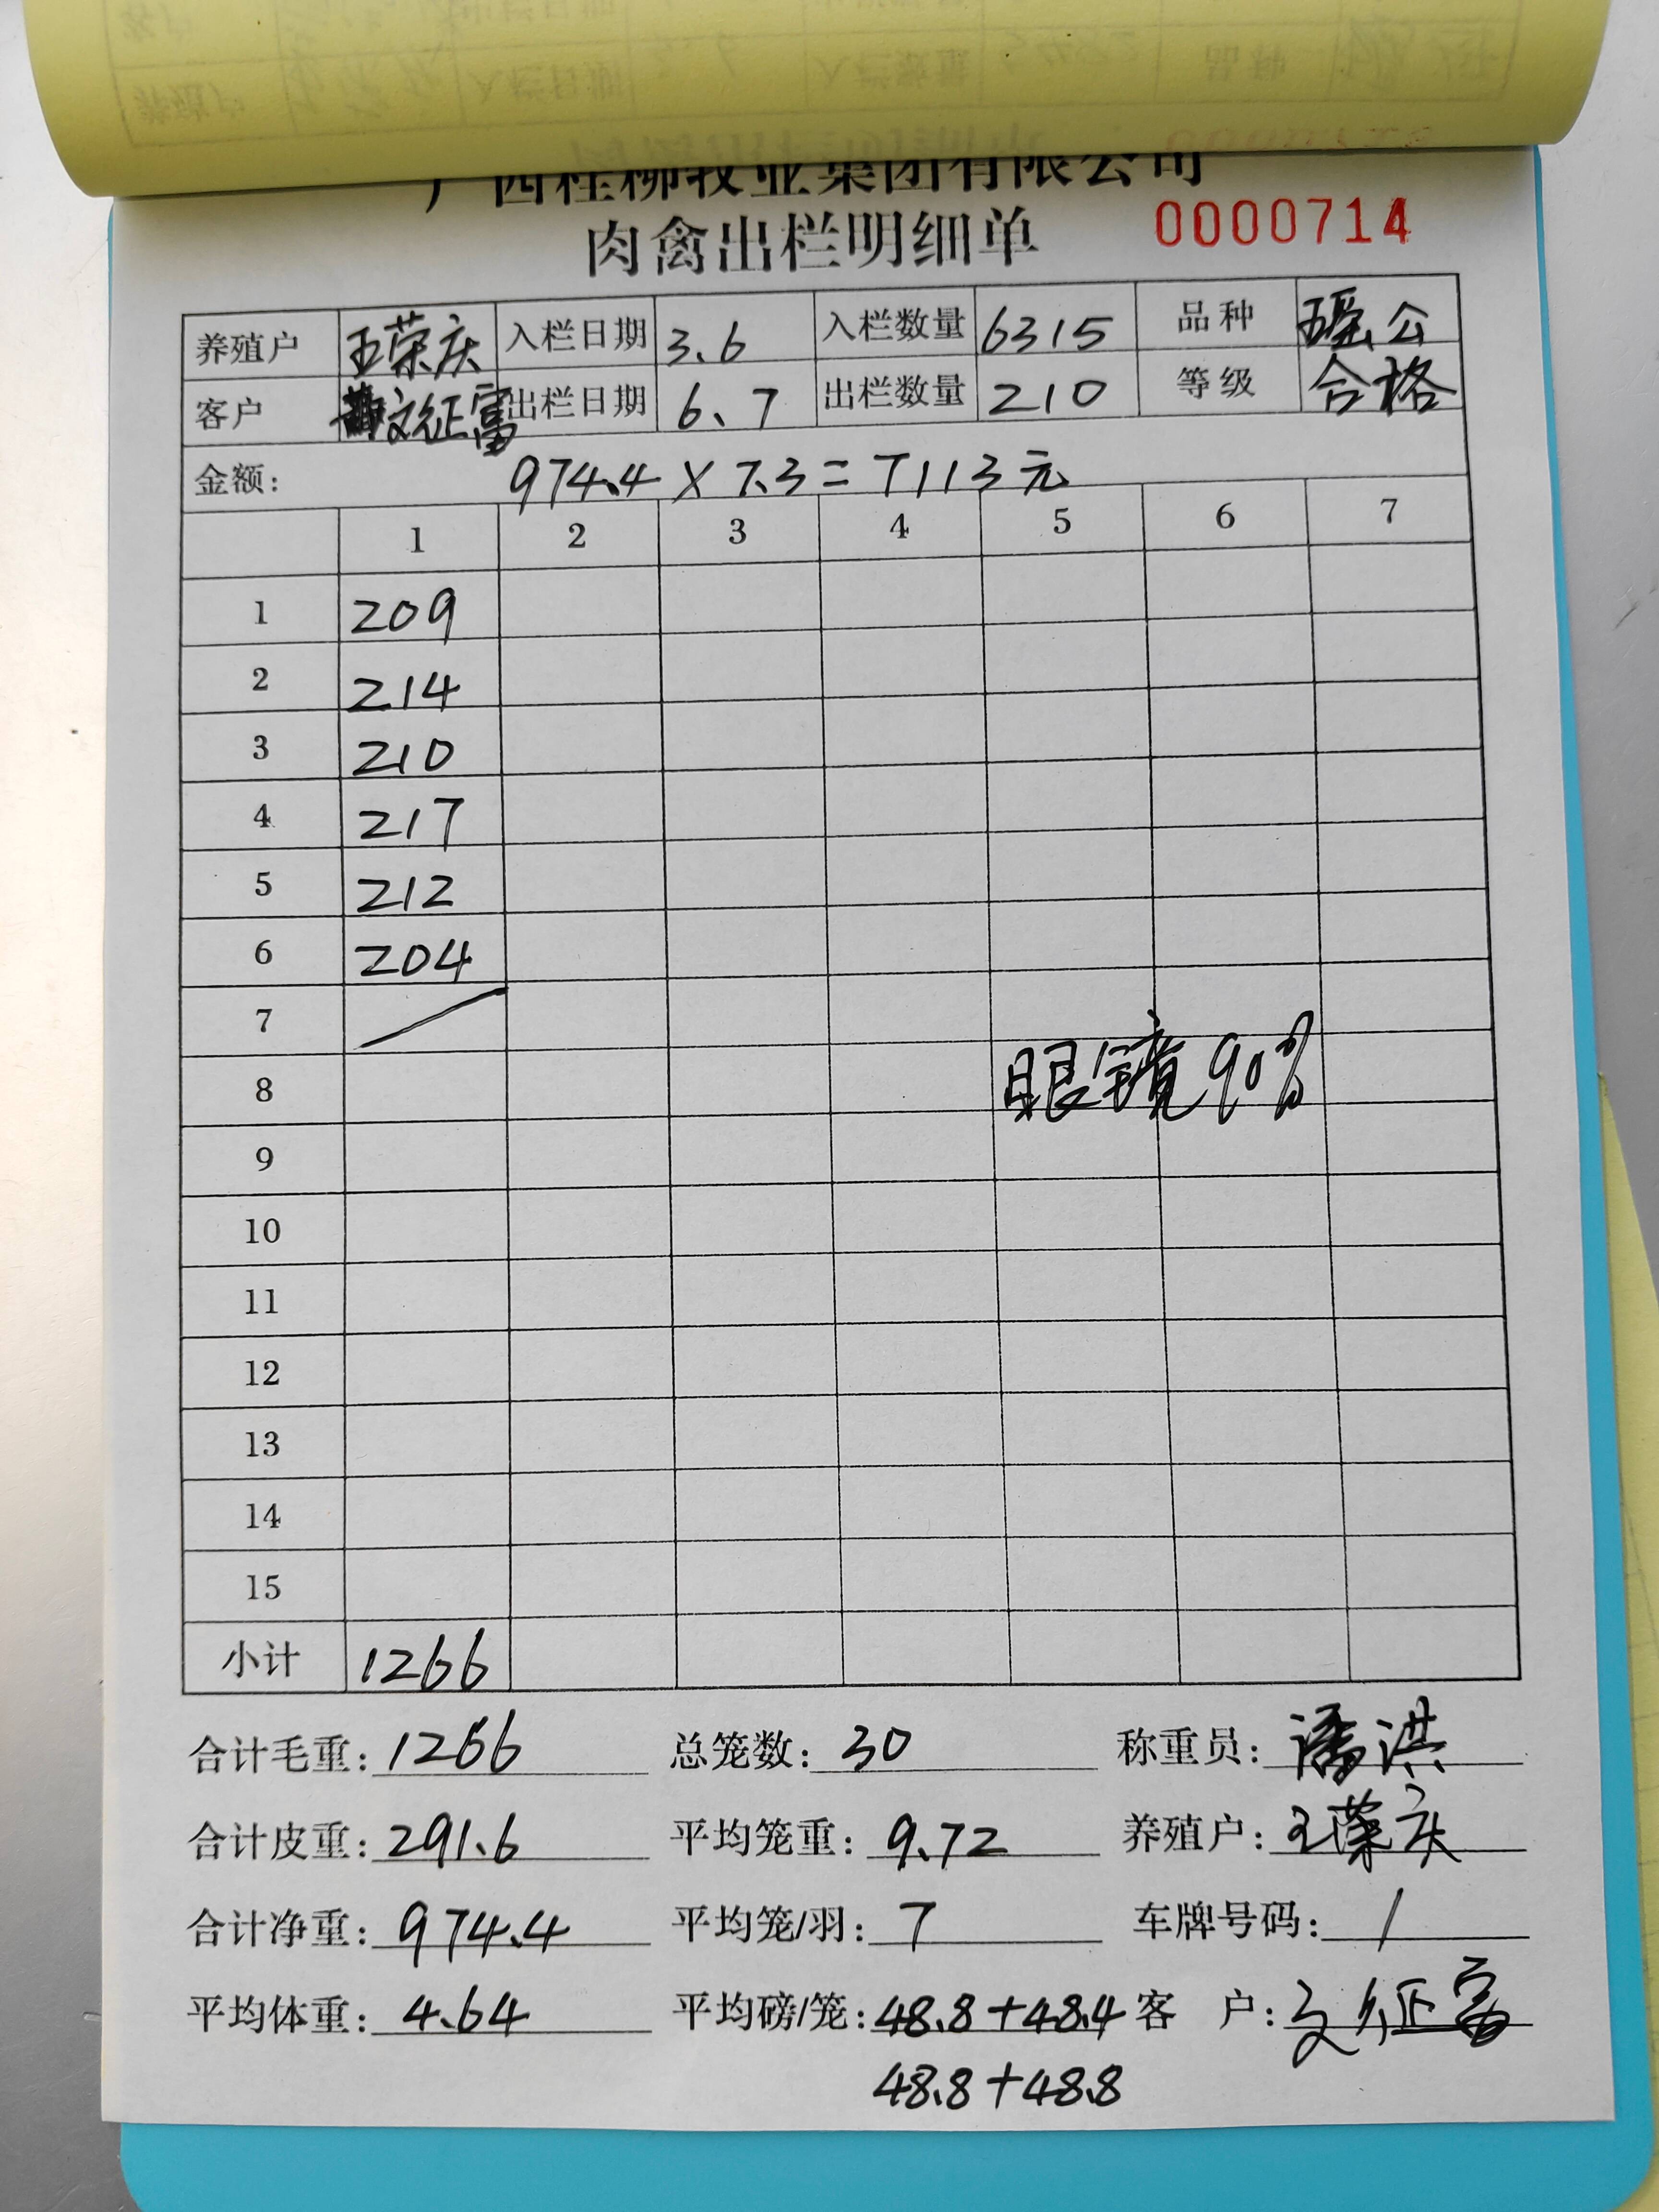 广西桂柳牧业集团有限公司
肉禽出栏明细单 0000714
养殖户 王荣庆 入栏日期 3.6 入栏数量 6315 品种 瑶公
客户 文征富 出栏日期 6.7 出栏数量 210 等级 合格
金额: 974.4×7.3=7113元
1 2 3 4 5 6 7
1 209
2 214
3 210
4 217
5 212
6 204
7
8 眼镜90%
9
10
11
12
13
14
15
小计 1266
合计毛重: 1266 总笼数: 30 称重员: 潘洪
合计皮重: 291.6 平均笼重: 9.72 养殖户: 王荣庆
合计净重: 974.4 平均笼/羽: 7 车牌号码: /
平均体重: 4.64 平均磅/笼: 48.8+48.4 客 户: 文征富
48.8+48.8